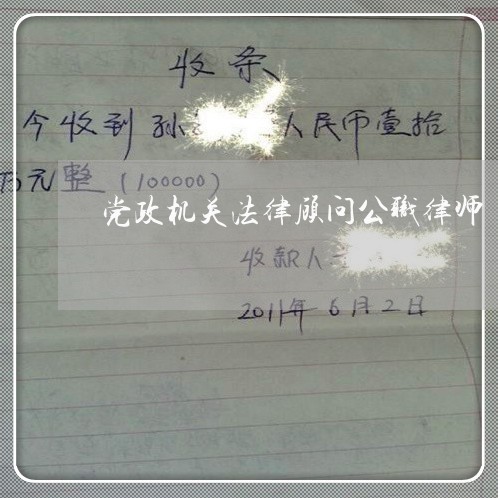 收条
今收到孙 人民币壹拾
万元整(100000)
党政机关法律顾问公职律师
收款人
2011年6月2日